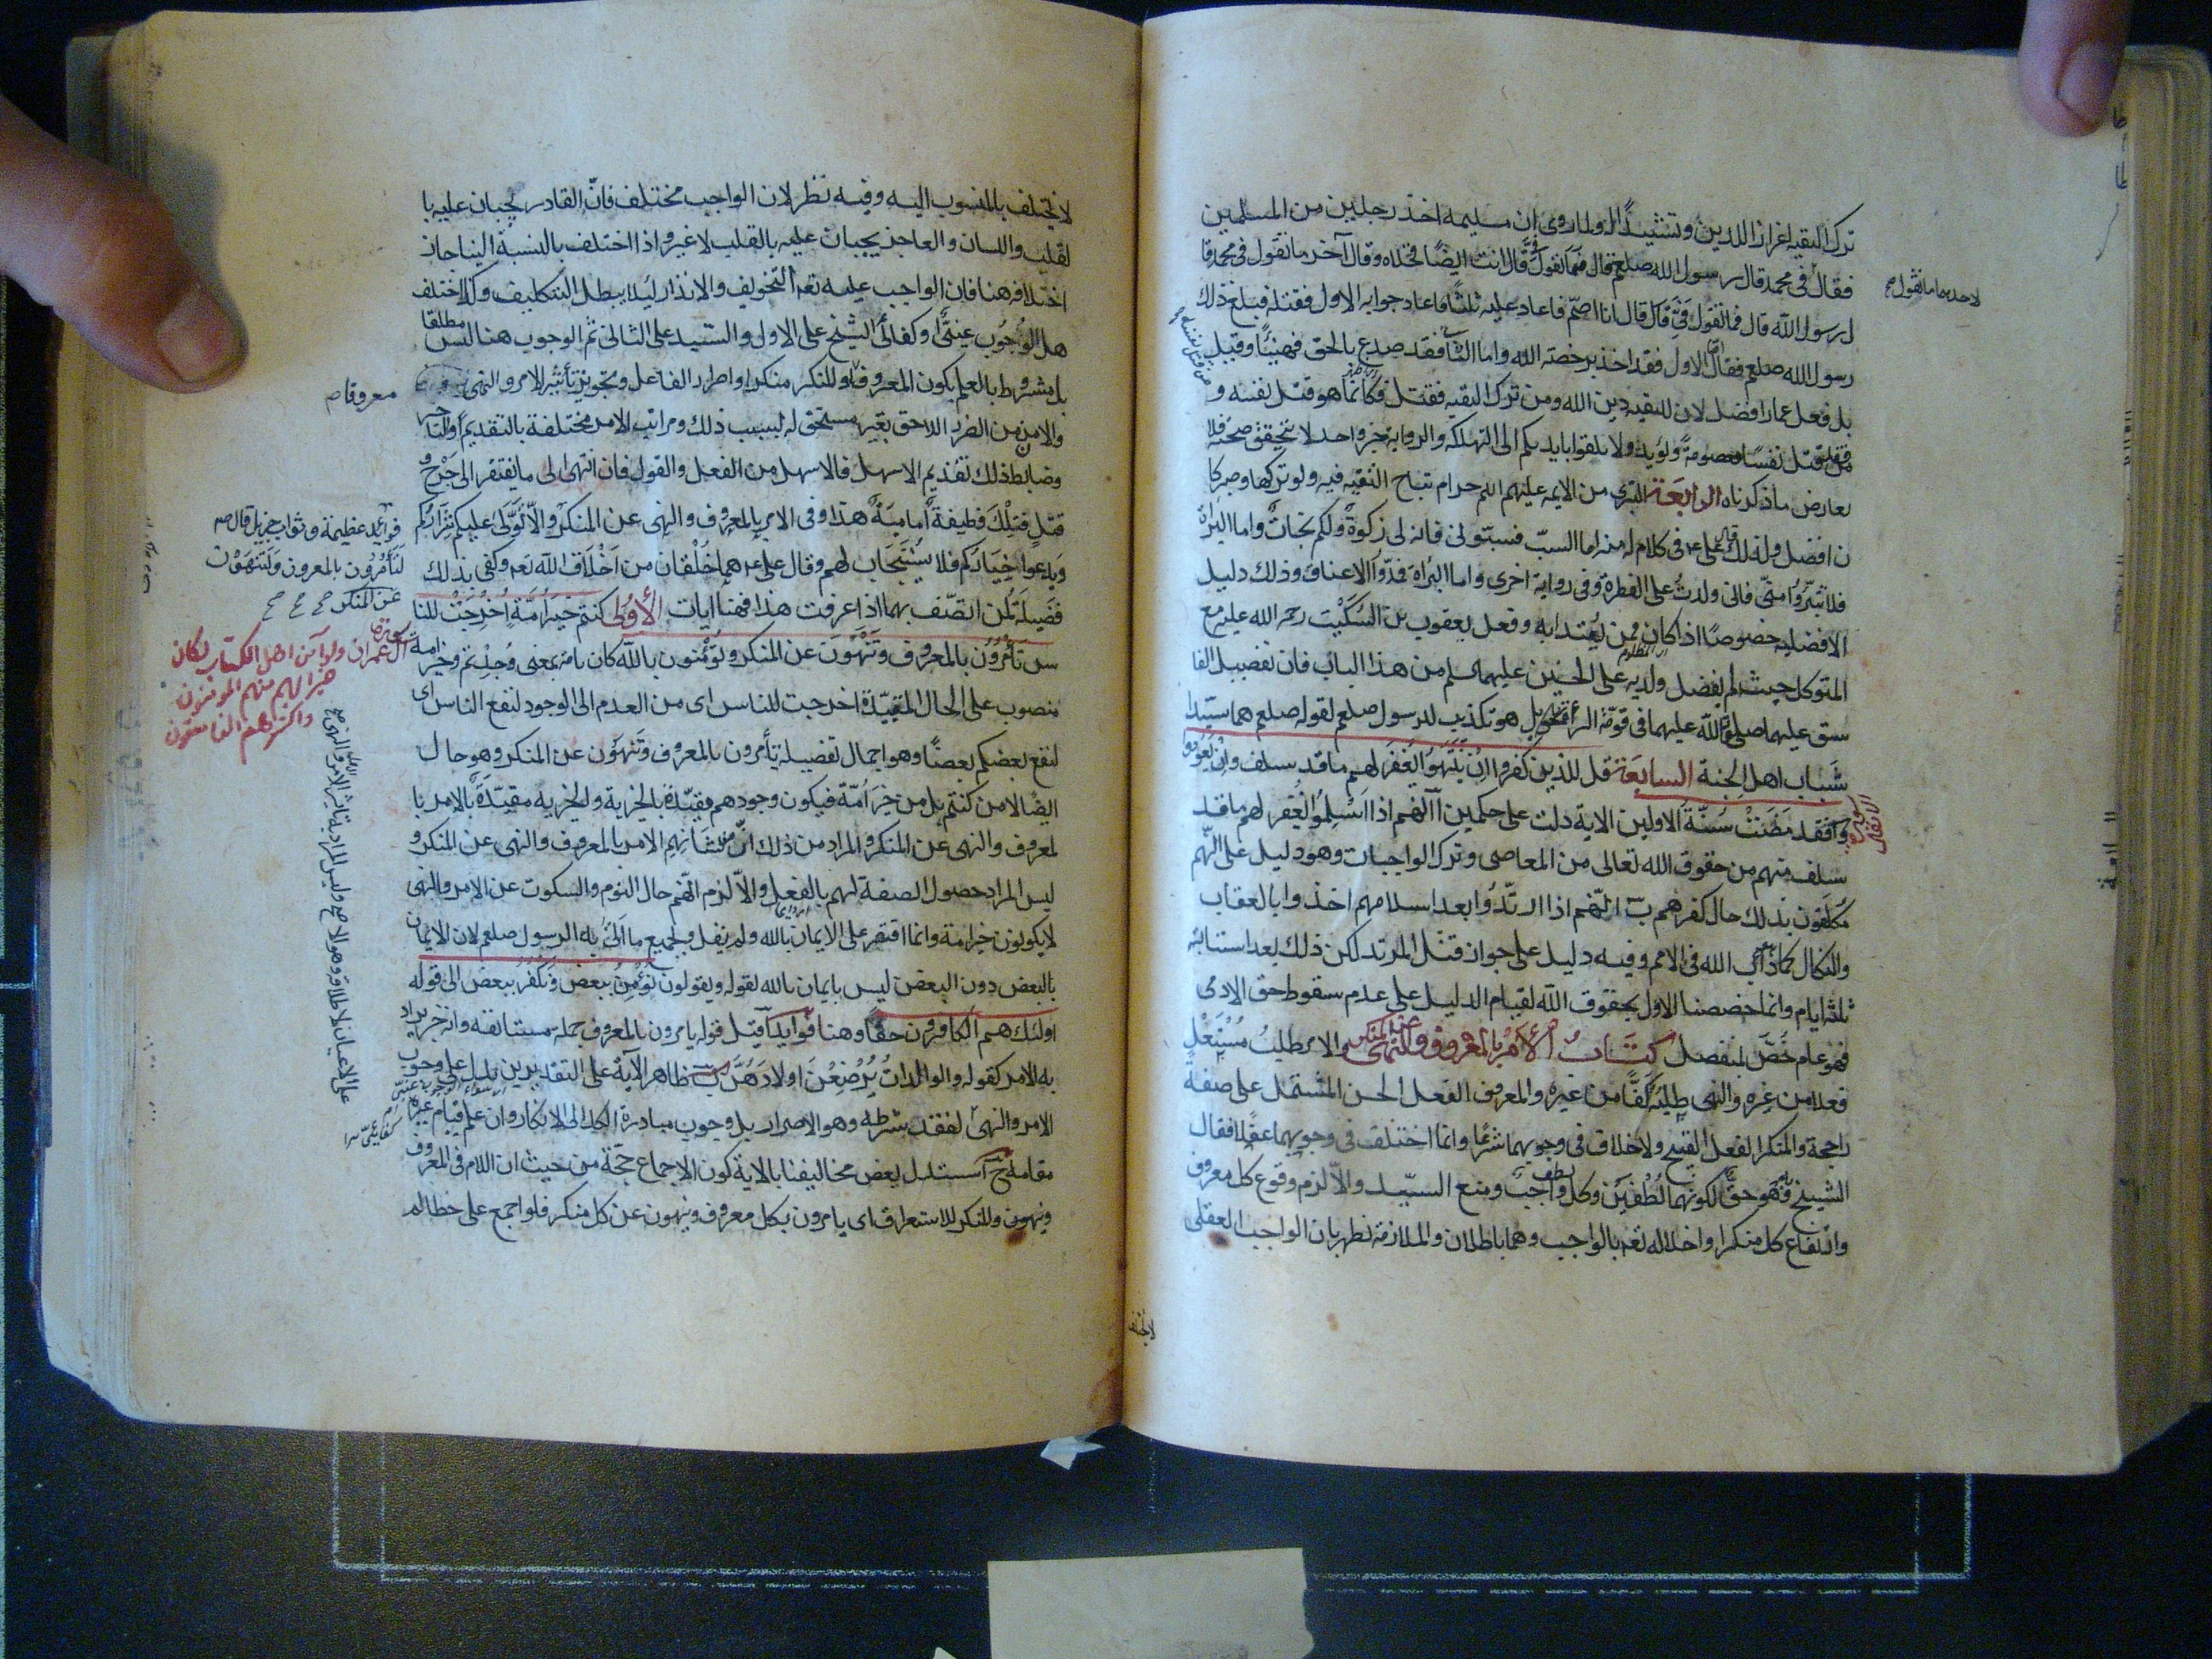 ترك التقيه اعزازا للدين وتشييدا له ولما روى ان مسيلمه اخذ رجلين من المسلمين
فقال في محمد قال رسول الله صلعم قال فما تقول فيّ قال انت ايضا فخلاه وقال آخر ما تقول في محمد قا
ل رسول الله قال فما تقول فيّ قال انا اصم فاعاد عليه ثلثا فاعاد جوابه الاول فقتله فبلغ ذلك
رسول الله صلعم فقال اما الاول فقد اخذ برخصة الله واما الثا فقد صدع بالحق فهنيئا وقيل
بل فعل عمار افضل لان التقيه دين الله ومن ترك التقيه فقتل فكانما هو قتل نفسه و
من قتل نفسا معصومة ويؤيده ولا تلقوا بايديكم الى التهلكه والرواية خبر واحد لا يتحقق صحته فلا
يعارض ما ذكرناه الرابعة التبري من الايمه عليهم السلم حرام تباح التقيه فيه ولو تركها وصبر كا
ن افضل ولذلك قال علي ع في كلام له اما السبّ فسبّوني فانه لي زكوة ولكم نجاة واما البراة
فلا تتبرّوا منّي فاني ولدت على الفطرة وفي رواية اخرى واما البراة فمدّوا الاعناق وذلك دليل
الافضليه خصوصا اذا كان ممن يقتدا به وفعل يعقوب بن السكيت رحمه الله عليه مع
المتوكل حيث لم يفضل ولديه على الحسنين عليهما السلم من هذا الباب فان تفضيل الفا
سق عليهما صلى الله عليهما في قوة التبري بل هو تكذيب للرسول صلعم لقوله صلعم هما سيّدا
شباب اهل الجنة السابعة قل للذين كفروا ان ينتهوا يغفر لهم ما قد سلف وان يعودو
وا فقد مضت سنّة الاولين الاية دلت على حكمين آ انهم اذا اسلموا يغفر لهم ما قد
سلف منهم من حقوق الله تعالى من المعاصي وترك الواجبات وهو دليل على انهم
مكلفون بذلك حال كفرهم ب انهم اذا ارتدّوا بعد اسلامهم اخذوا بالعقاب
والنكال كما دأب الله في الامم وفيه دليل على جواز قتل المرتد لكن ذلك بعد استتابته
ثلثة ايام وانما خصصنا الاول بحقوق الله لقيام الدليل على عدم سقوط حق الادمي
فهو عام خصّ بمنفصل كتاب الامر بالمعروف والنهي عن المنكر والامر طلب مستعل
فعلا من غيره والنهي طلبه كفّا من غيره والمعروف الفعل الحسن المشتمل على صفة
راجحة والمنكر الفعل القبيح ولا خلاف في وجوبهما شرعا وانما اختلف في وجوبهما عقلا فقال
الشيخ به وهو حق لكونهما لطفين وكل لطف واجب ومنع السيّد والا لزم وقوع كل معروف
وارتفاع كل منكر او اخلاله تعه بالواجب وهما باطلان والملازمة تظهر بان الواجب العقلي
لاحدهما ما تقول
الانفال
لا يختلف
لا يختلف بالمنسوب اليه وفيه نظر لان الواجب مختلف فانّ القادر يجبان عليه با
لقلب واللسان والعاجز يجبان عليه بالقلب لا غير واذا اختلف بالنسبة الينا جاز
اختلافه هنا فان الواجب عليه تعه التخويف والانذار ليلا يبطل التكليف وكذا اختلف
هل الوجوب عينيّ او كفائي الشيخ على الاول والسيد على الثاني ثم الوجوب هنا ليس مطلقا
بل مشروط بالعلم بكون المعروف والمنكر منكرا واصرار الفاعل وتجويز تأثير الامر والنهي
والامن من الضرر اللاحق بغير مستحق له بسبب ذلك ومراتب الامر مختلفة بالتقديم والتاخير
وضابط ذلك تقديم الاسهل فالاسهل من الفعل والقول فان انتهى الى ما يفتقر الى جرح و
قتل فتلك وظيفة امامية هذا وفي الامر بالمعروف والنهي عن المنكر والا تولى عليكم شراركم
ويدعوا خياركم فلا يستجاب لهم وقال علي ع هما خلقان من اخلاق الله تعه وكفى بذلك
فضيلة لمن اتصف بهما اذا عرفت هذا فهنا ايات الأولى كنتم خير امّة اخرجت للنا
س تأمرون بالمعروف وتنهون عن المنكر وتؤمنون بالله كان تامة بمعنى وجدتم وخير امة
منصوب على الحال المقيّدة اخرجت للناس اى من العدم الى الوجود لنفع الناس اى
لنفع بعضكم بعضا وهو اجمال تفصيله تأمرون بالمعروف وتنهون عن المنكر وهو حال
ايضا لا من كنتم بل من خير امّة فيكون وجودهم مقيّدة بالخيرية والخيريه مقيّدة بالامر با
لمعروف والنهي عن المنكر والمراد من ذلك ان من شانهم الامر بالمعروف والنهي عن المنكر و
ليس المراد حصول الصفة لهم بالفعل والا لزم انهم حال النوم والسكوت عن الامر والنهي
لا يكونون خير امة وانما اقتصر على الايمان بالله ولم يقل وبجميع ما اتى به الرسول صلعم لان الايمان
بالبعض دون البعض ليس بايمان بالله لقوله ويقولون نؤمن ببعض ونكفر ببعض الى قوله
اولئك هم الكافرون حقا وهنا فوايد آ قيل قوله يامرون بالمعروف جملة مستانفة وانه خبر يراد
به الامر كقوله والوالدات يرضعن اولادهنّ ب ظاهر الآية على التقديرين يدل على وجوب
الامر والنهي لفقد شرطه وهو الاصرار بل وجوب مبادرة الكل الى الانكار وان علم قيام غيره
مقامه ج استدل بعض مخالفينا بالاية كون الاجماع حجة من حيث ان اللام في المعروف
والمنكر للاستغراق اى يامرون بكل معروف وينهون عن كل منكر فلو اجمع على خطا لم
معروفا
فوائد عظيمة وثواب جزيل قال
لتأمرون بالمعروف ولتنهون
عن المنكر
آل عمران ولو آمن اهل الكتاب لكان
خيرا لهم منهم المومنون
واكثرهم الفاسقون